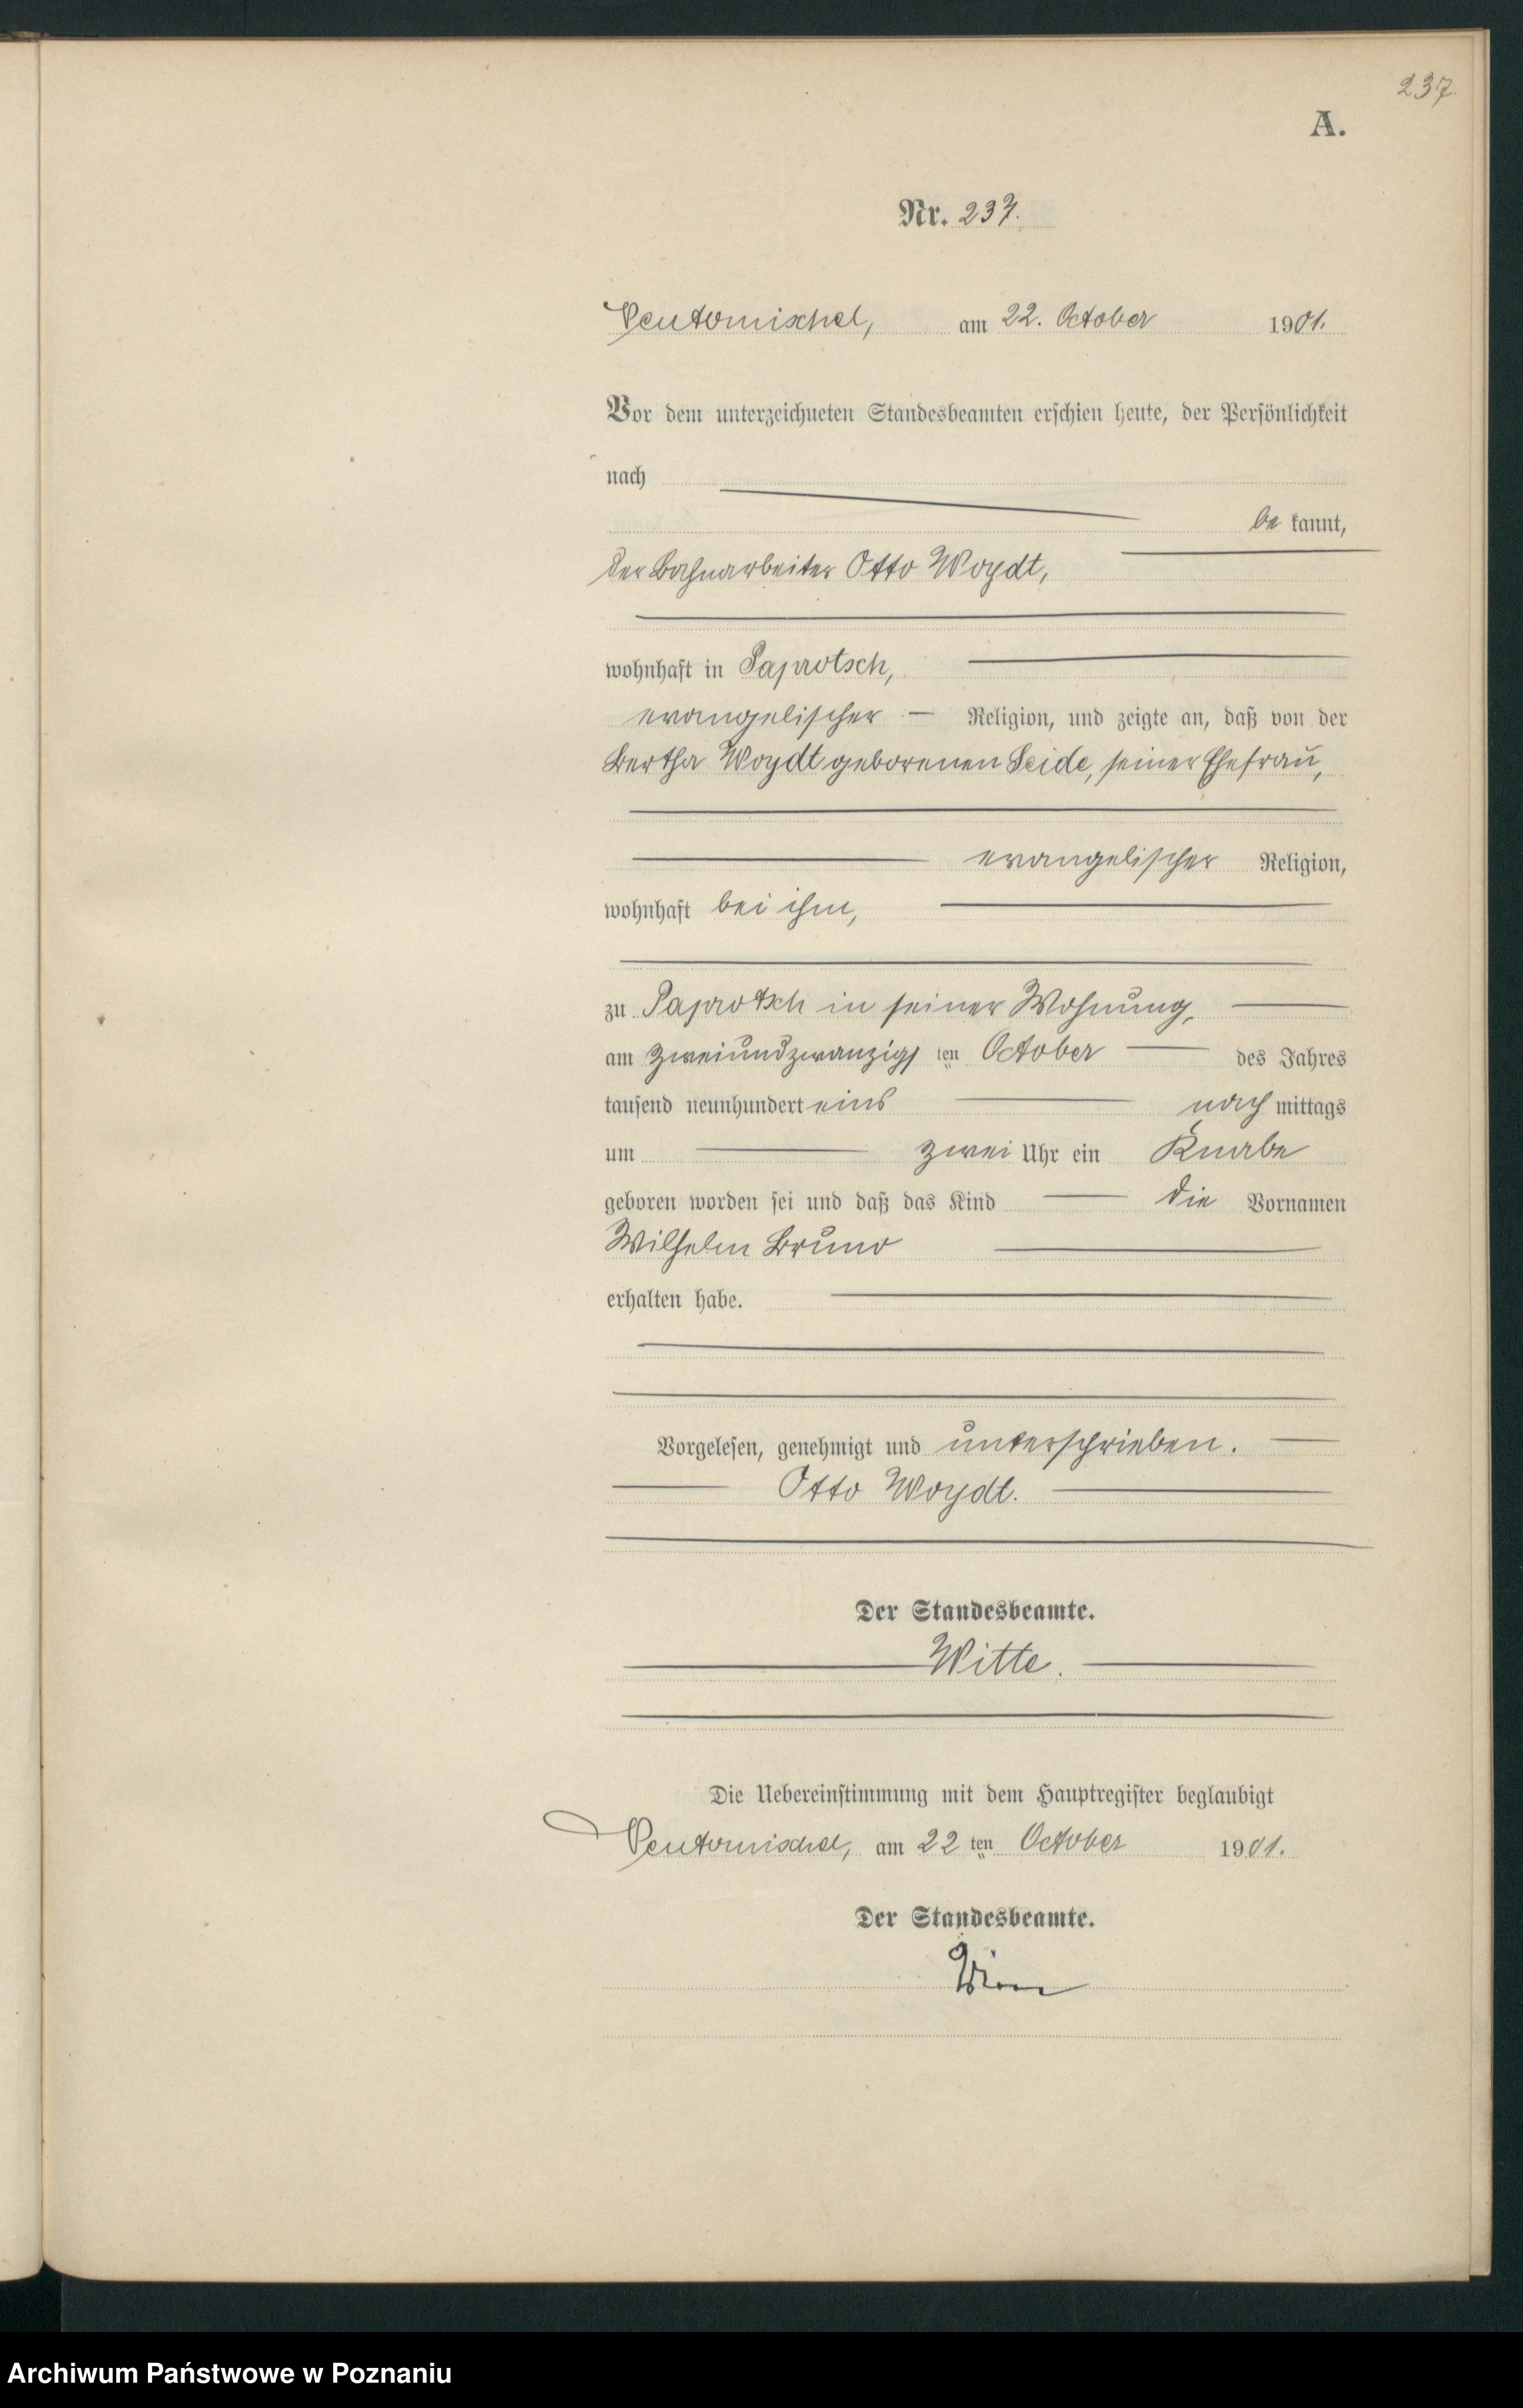 237.
A.
Nr. 237.
Neutomischel, am 22. October 1901.
Vor dem unterzeichneten Standesbeamten erschien heute, der Persönlichkeit
nach
be kannt,
der Bahnarbeiter Otto Woydt,
wohnhaft in Paprotsch,
evangelischer Religion, und zeigte an, daß von der
Bertha Woydt geborenen Seide, seiner Ehefrau,
evangelischer Religion,
wohnhaft bei ihm,
zu Paprotsch in seiner Wohnung,
am zweiundzwanzigs ten October des Jahres
tausend neunhundert eins nach mittags
um zwei Uhr ein Knabe
geboren worden sei und daß das Kind die Vornamen
Wilhelm Bruno
erhalten habe.
Vorgelesen, genehmigt und unterschrieben.
Otto Woydt.
Der Standesbeamte.
Witte.
Die Uebereinstimmung mit dem Hauptregister beglaubigt
Neutomischel, am 22 ten October 1901.
Der Standesbeamte.
Archiwum Państwowe w Poznaniu